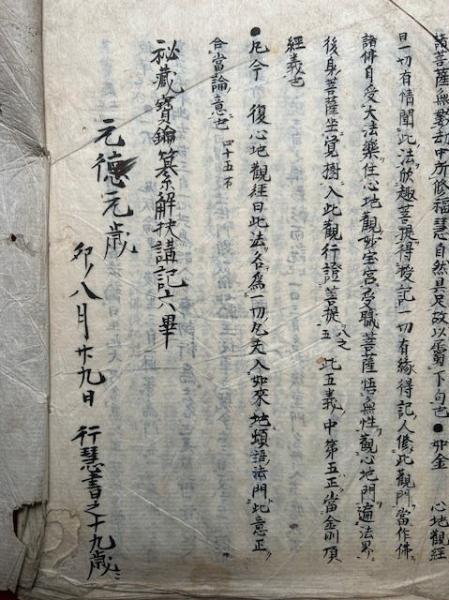 諸菩薩無數劫中所修福慧自然具足故以屬下句也●卯金 心地觀經
曰一切有情聞此法欣趣菩提得授記一切有緣得記人修此觀門當作佛
諸佛自受大法樂住心地觀妙宝宮受職菩薩悟無性觀心地門遍法界
後身菩薩坐覚樹入此觀行證菩提 此五義中第五正當金剛頂
經義也
●凡今 復心地觀經曰此法名為一切凡夫入如來地頓語法門此意正
合當論意也 四十五
祕藏寶鑰纂解抉講記六畢
元德元歲
卯八月廿九日 行慧書之十九歲